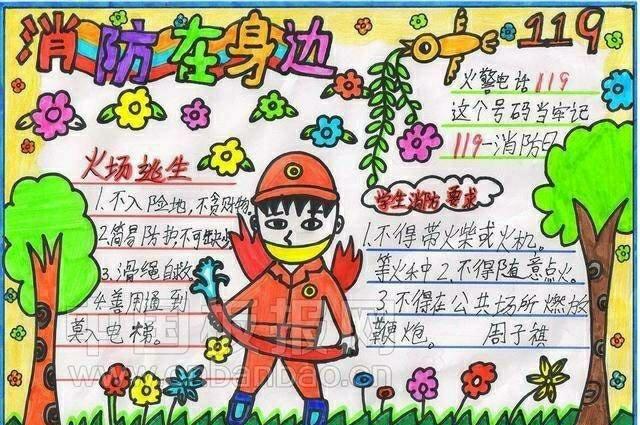 消防在身边
119
火警电话119
这个号码当牢记
119-消防日
火场逃生
1.不入险地,不贪财物。
2.简易防护不可缺少
3.滑绳自救
4.善用通到
莫入电梯。
学生消防要求
1.不得带火柴或火机。
等火种2.不得随意点火。
3.不得在公共场所燃放
鞭炮。 周子祺